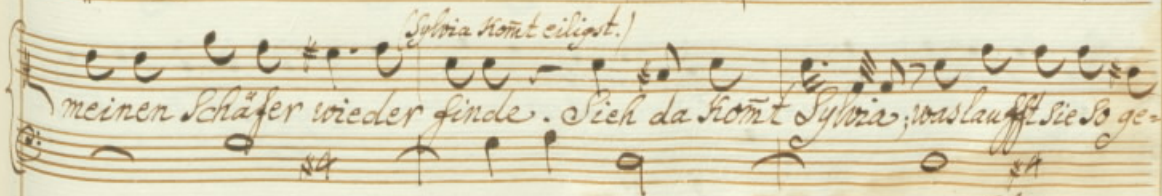 (Sylvia kom̄t eiligst.)
meinen Schäfer wieder finde. Sieh da kom̄t Sylvia; was laufft sie so ge=